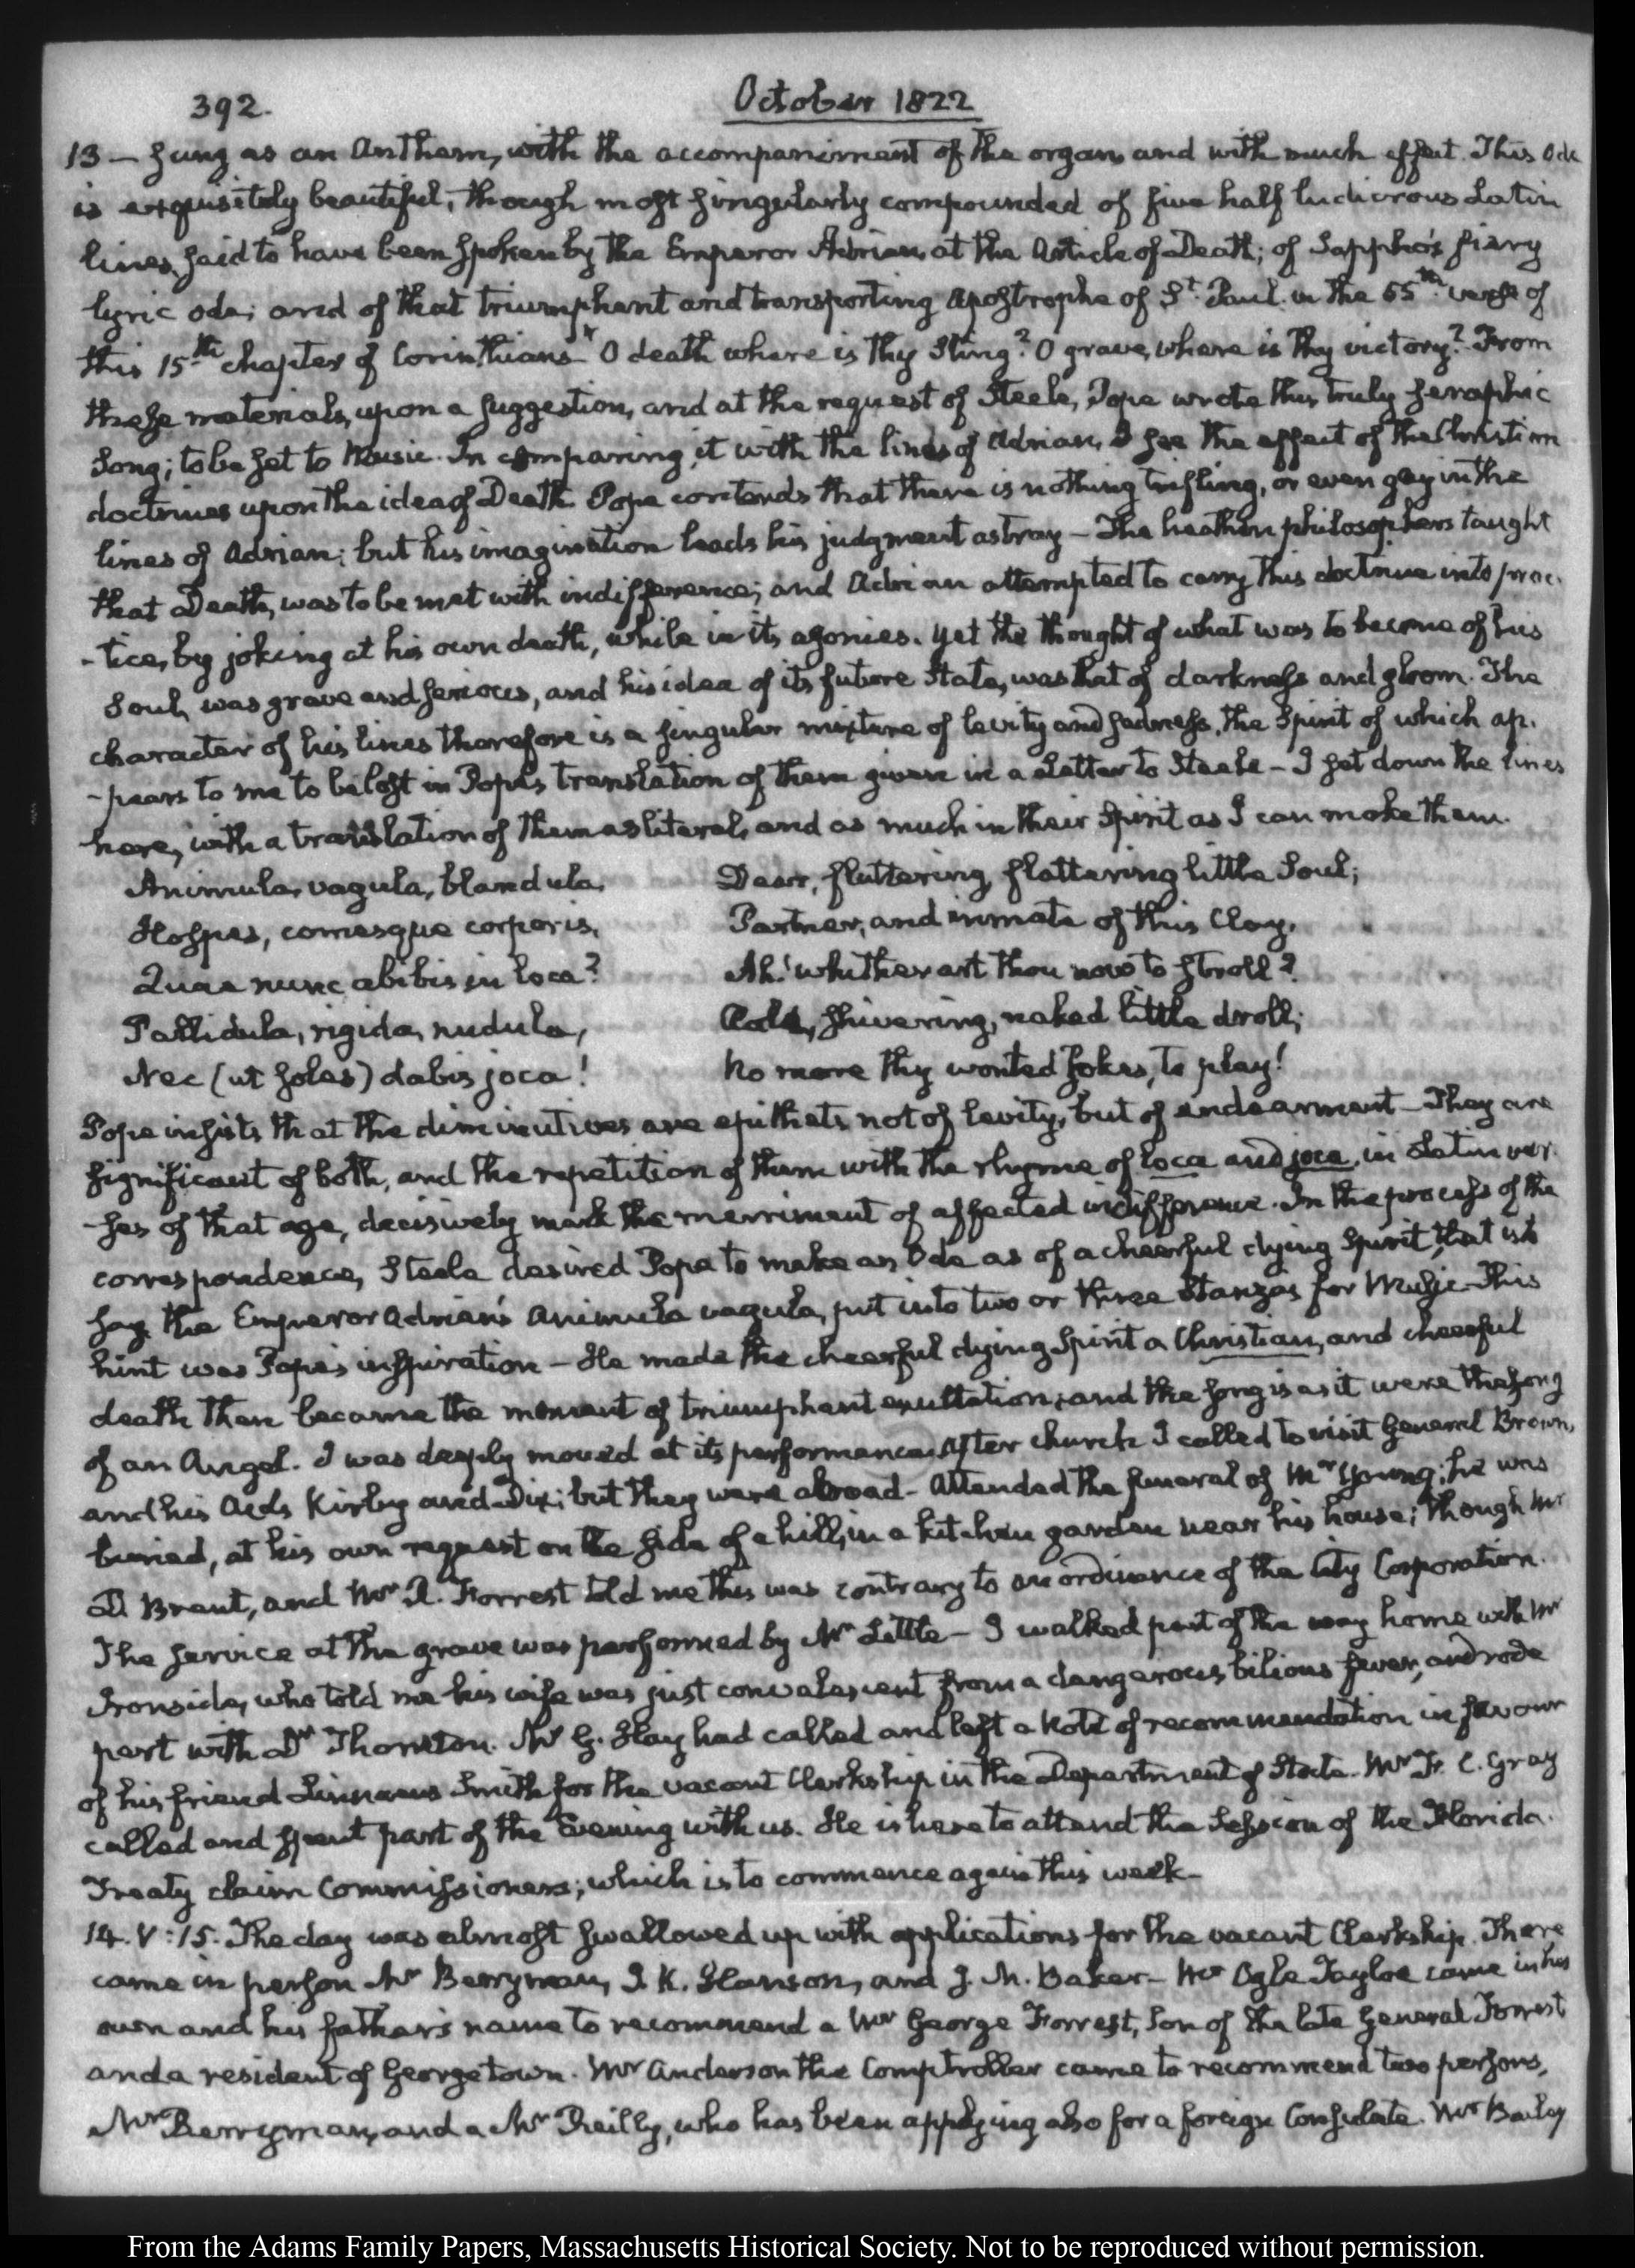 392.
October 1822
13 — sung as an Anthem, with the accompaniment of the organ, and with much effect. This Ode
is exquisitely beautiful, though most singularly compounded of five half ludicrous Latin
lines, said to have been spoken by the Emperor Adrian, at the Article of Death; of Sappho's fiery
lyric ode; and of that triumphant and transporting apostrophe of St. Paul. in the 55th. verse of
this 15th chapter of Corinthians "O death where is thy Sting? O grave, where is thy victory? From
these materials, upon a suggestion, and at the request of Steele, Pope wrote this truly seraphic
Song; to be set to Music. In comparing it with the lines of Adrian, I see the effect of the Christian
doctrines upon the idea of Death. Pope contends that there is nothing trifling, or even gay in the
lines of Adrian; but his imagination leads his judgment astray — The heathen philosophers taught
that Death, was to be met with indifference; and Adrian attempted to carry this doctrine into prac-
-tice, by joking at his own death, while in its agonies. Yet the thought of what was to become of his
Soul, was grave and serious, and his idea of its future state, was that of darkness and gloom. The
character of his lines therefore is a singular mixture of levity and sadness, the Spirit of which ap-
-pears to me to be lost in Pope's translation of them given in a Letter to Steele — I set down the lines
here, with a translation of them as literal, and as much in their Spirit as I can make them.
Animula, vagula, blandula,
Hospes, comesque corporis,
Quae nunc abibis in loca?
Pallidula, rigida, nudula,
Nec (ut soles) dabis joca!
Dear, fluttering, flattering little Soul;
Partner, and inmate of this Clay.
Ah! whither art thou now to stroll?
Cold, shivering, naked little droll;
No more thy wonted Jokes, to play!
Pope insists that the diminutives are epithets not of levity, but of endearment — They are
significant of both, and the repetition of them with the rhyme of loca and joca, in Latin ver-
-ses of that age, decisively mark the merriment of affected indifference. In the process of the
correspondence, Steele desired Pope to make an Ode as of a cheerful dying Spirit, that is to
say the Emperor Adrian's animula vagula, put into two or three Stanzas for Music. This
hint was Pope's inspiration — He made the cheerful dying Spirit a Christian, and cheerful
death then became the moment of triumphant exultation; and the song is as it were the song
of an Angel. I was deeply moved at its performance. After church I called to visit General Brown,
and his Aids Kirby and Dix; but they were abroad — Attended the funeral of Mr Young; he was
buried, at his own request on the side of a hill, in a kitchen garden near his house; though Mr
D Brent, and Mr R. Forrest told me this was contrary to an ordinance of the City Corporation.
The service at the grave was performed by Mr Little — I walked part of the way home with Mr
Ironside, who told me his wife was just convalescent from a dangerous bilious fever, and rode
part with Dr Thornton. Mr G. Hay had called and left a Note of recommendation in favour
of his friend Linnaeus Smith for the vacant Clerkship in the Department of State. Mr F. C. Gray
called and spent part of the Evening with us. He is here to attend the Session of the Florida
Treaty claim Commissioners; which is to commence again this week —
14. V:15. The day was almost swallowed up with applications for the vacant Clerkship. There
came in person Mr Berryman, I. K. Hanson, and J. M. Baker — Mr Ogle Tayloe came in his
own and his father's name to recommend a Mr George Forrest, Son of the late General Forrest
and a resident of Georgetown. Mr Anderson the Comptroller came to recommend two persons,
Mr Berryman, and a Mr Reilly, who has been applying also for a foreign Consulate. Mr Bailey
From the Adams Family Papers, Massachusetts Historical Society. Not to be reproduced without permission.